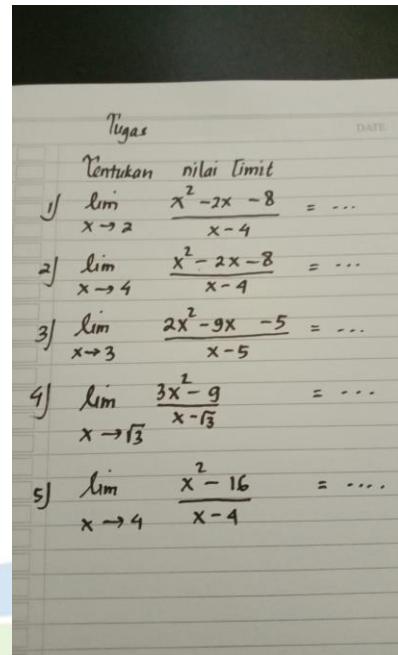 Tugas
DATE
Tentukan nilai limit
1) lim x→2 (x² - 2x - 8)/(x - 4) = ...
2) lim x→4 (x² - 2x - 8)/(x - 4) = ...
3) lim x→3 (2x² - 9x - 5)/(x - 5) = ...
4) lim x→√3 (3x² - 9)/(x - √3) = ...
5) lim x→4 (x² - 16)/(x - 4) = ....